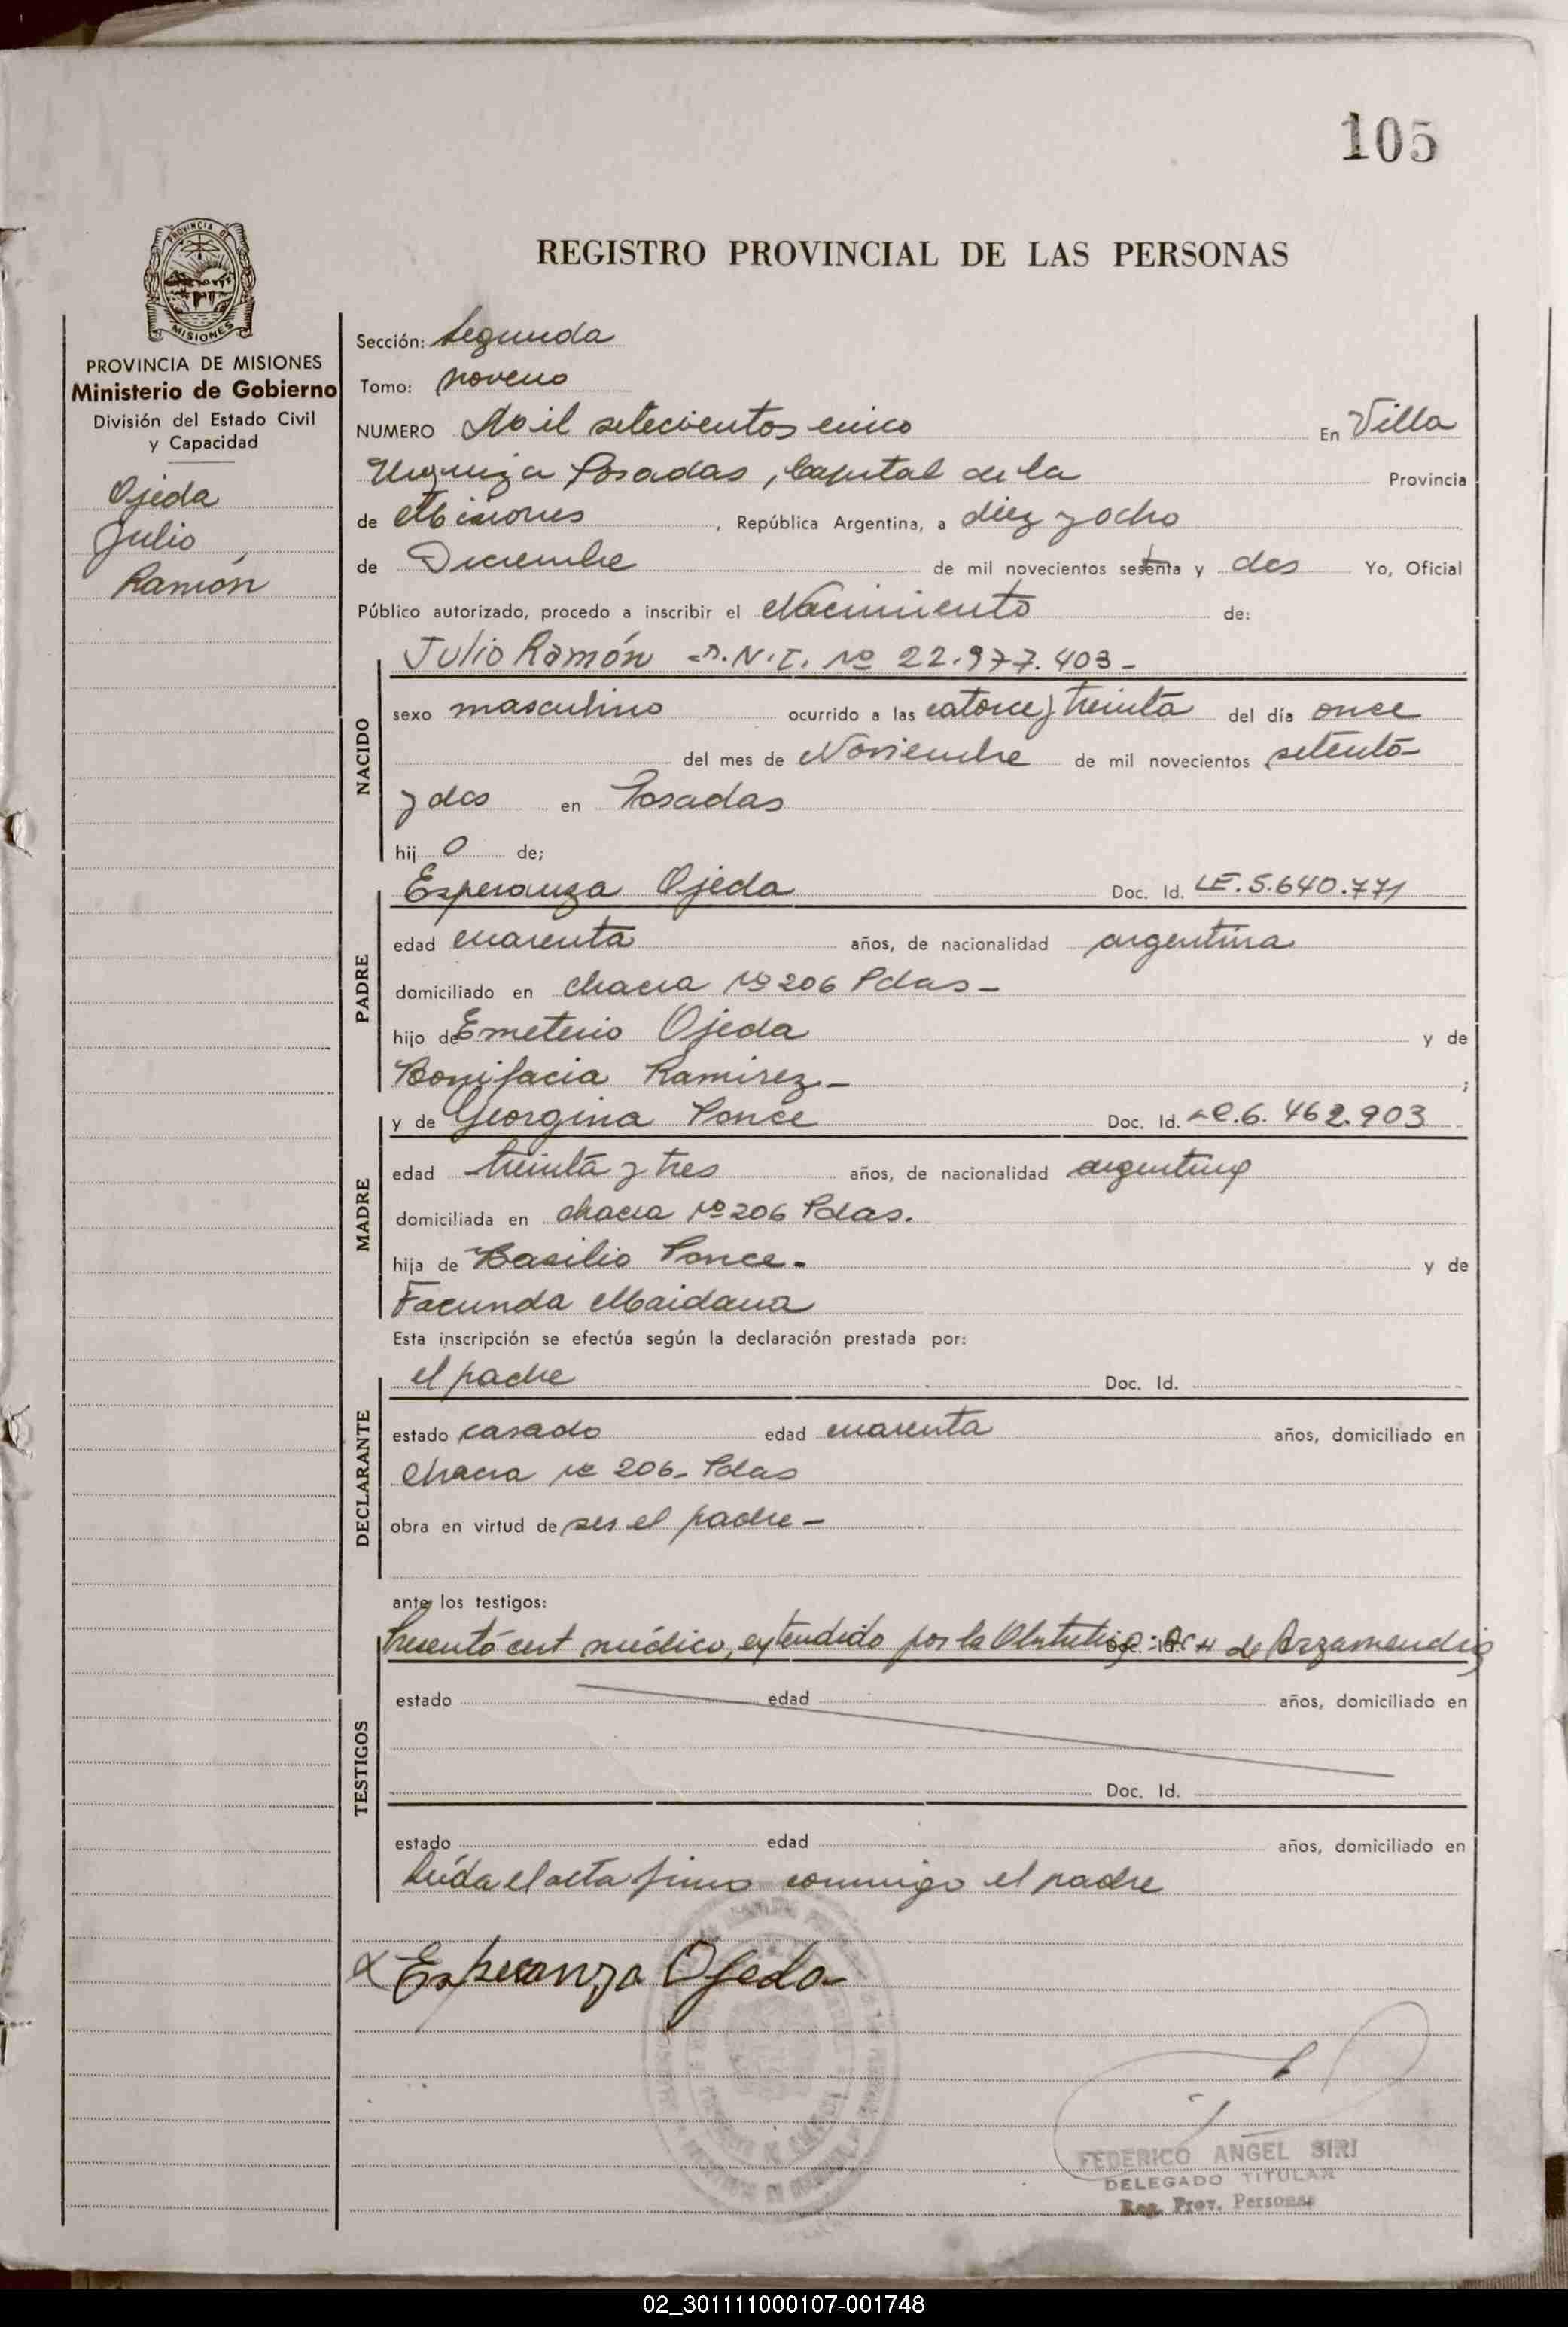 105
REGISTRO PROVINCIAL DE LAS PERSONAS
PROVINCIA DE MISIONES
PROVINCIA DE MISIONES
Ministerio de Gobierno
División del Estado Civil
y Capacidad
Ojeda
Julio
Ramón
Sección: Segunda
Tomo: Noveno
NUMERO Mil setecientos cinco En Villa
Urquiza Posadas, Capital de la Provincia
de Misiones, República Argentina, a diez y ocho
de Diciembre de mil novecientos sesenta y dos Yo, Oficial
Público autorizado, procedo a inscribir el Nacimiento de:
Julio Ramón D.N.I. Nº 22.977.403-
NACIDO
sexo masculino ocurrido a las catorce y treinta del día once
del mes de Noviembre de mil novecientos setenta-
y dos en Posadas
hij o de;
PADRE
Esperanza Ojeda Doc. Id. LE. 5.640.771
edad cuarenta años, de nacionalidad argentina
domiciliado en chacra Nº 206 Pdas-
hijo de Emeterio Ojeda y de
Bonifacia Ramirez- ;
MADRE
y de Georgina Ponce Doc. Id. LC. 6.462.903
edad treinta y tres años, de nacionalidad argentina
domiciliada en chacra Nº 206 Pdas.
hija de Basilio Ponce- y de
Facunda Maidana
Esta inscripción se efectúa según la declaración prestada por:
DECLARANTE
el padre Doc. Id.
estado casado edad cuarenta años, domiciliado en
Chacra Nº 206- Pdas
obra en virtud de ser el padre-
ante los testigos:
TESTIGOS
Presentó cert médico, extendido por la Obstetrica: de Arzamendia
estado edad años, domiciliado en
Doc. Id.
estado edad años, domiciliado en
Leída el acta firma conmigo el padre
Esperanza Ojeda
FEDERICO ANGEL SIRI
DELEGADO TITULAR
Reg. Prov. Personas
02_301111000107-001748